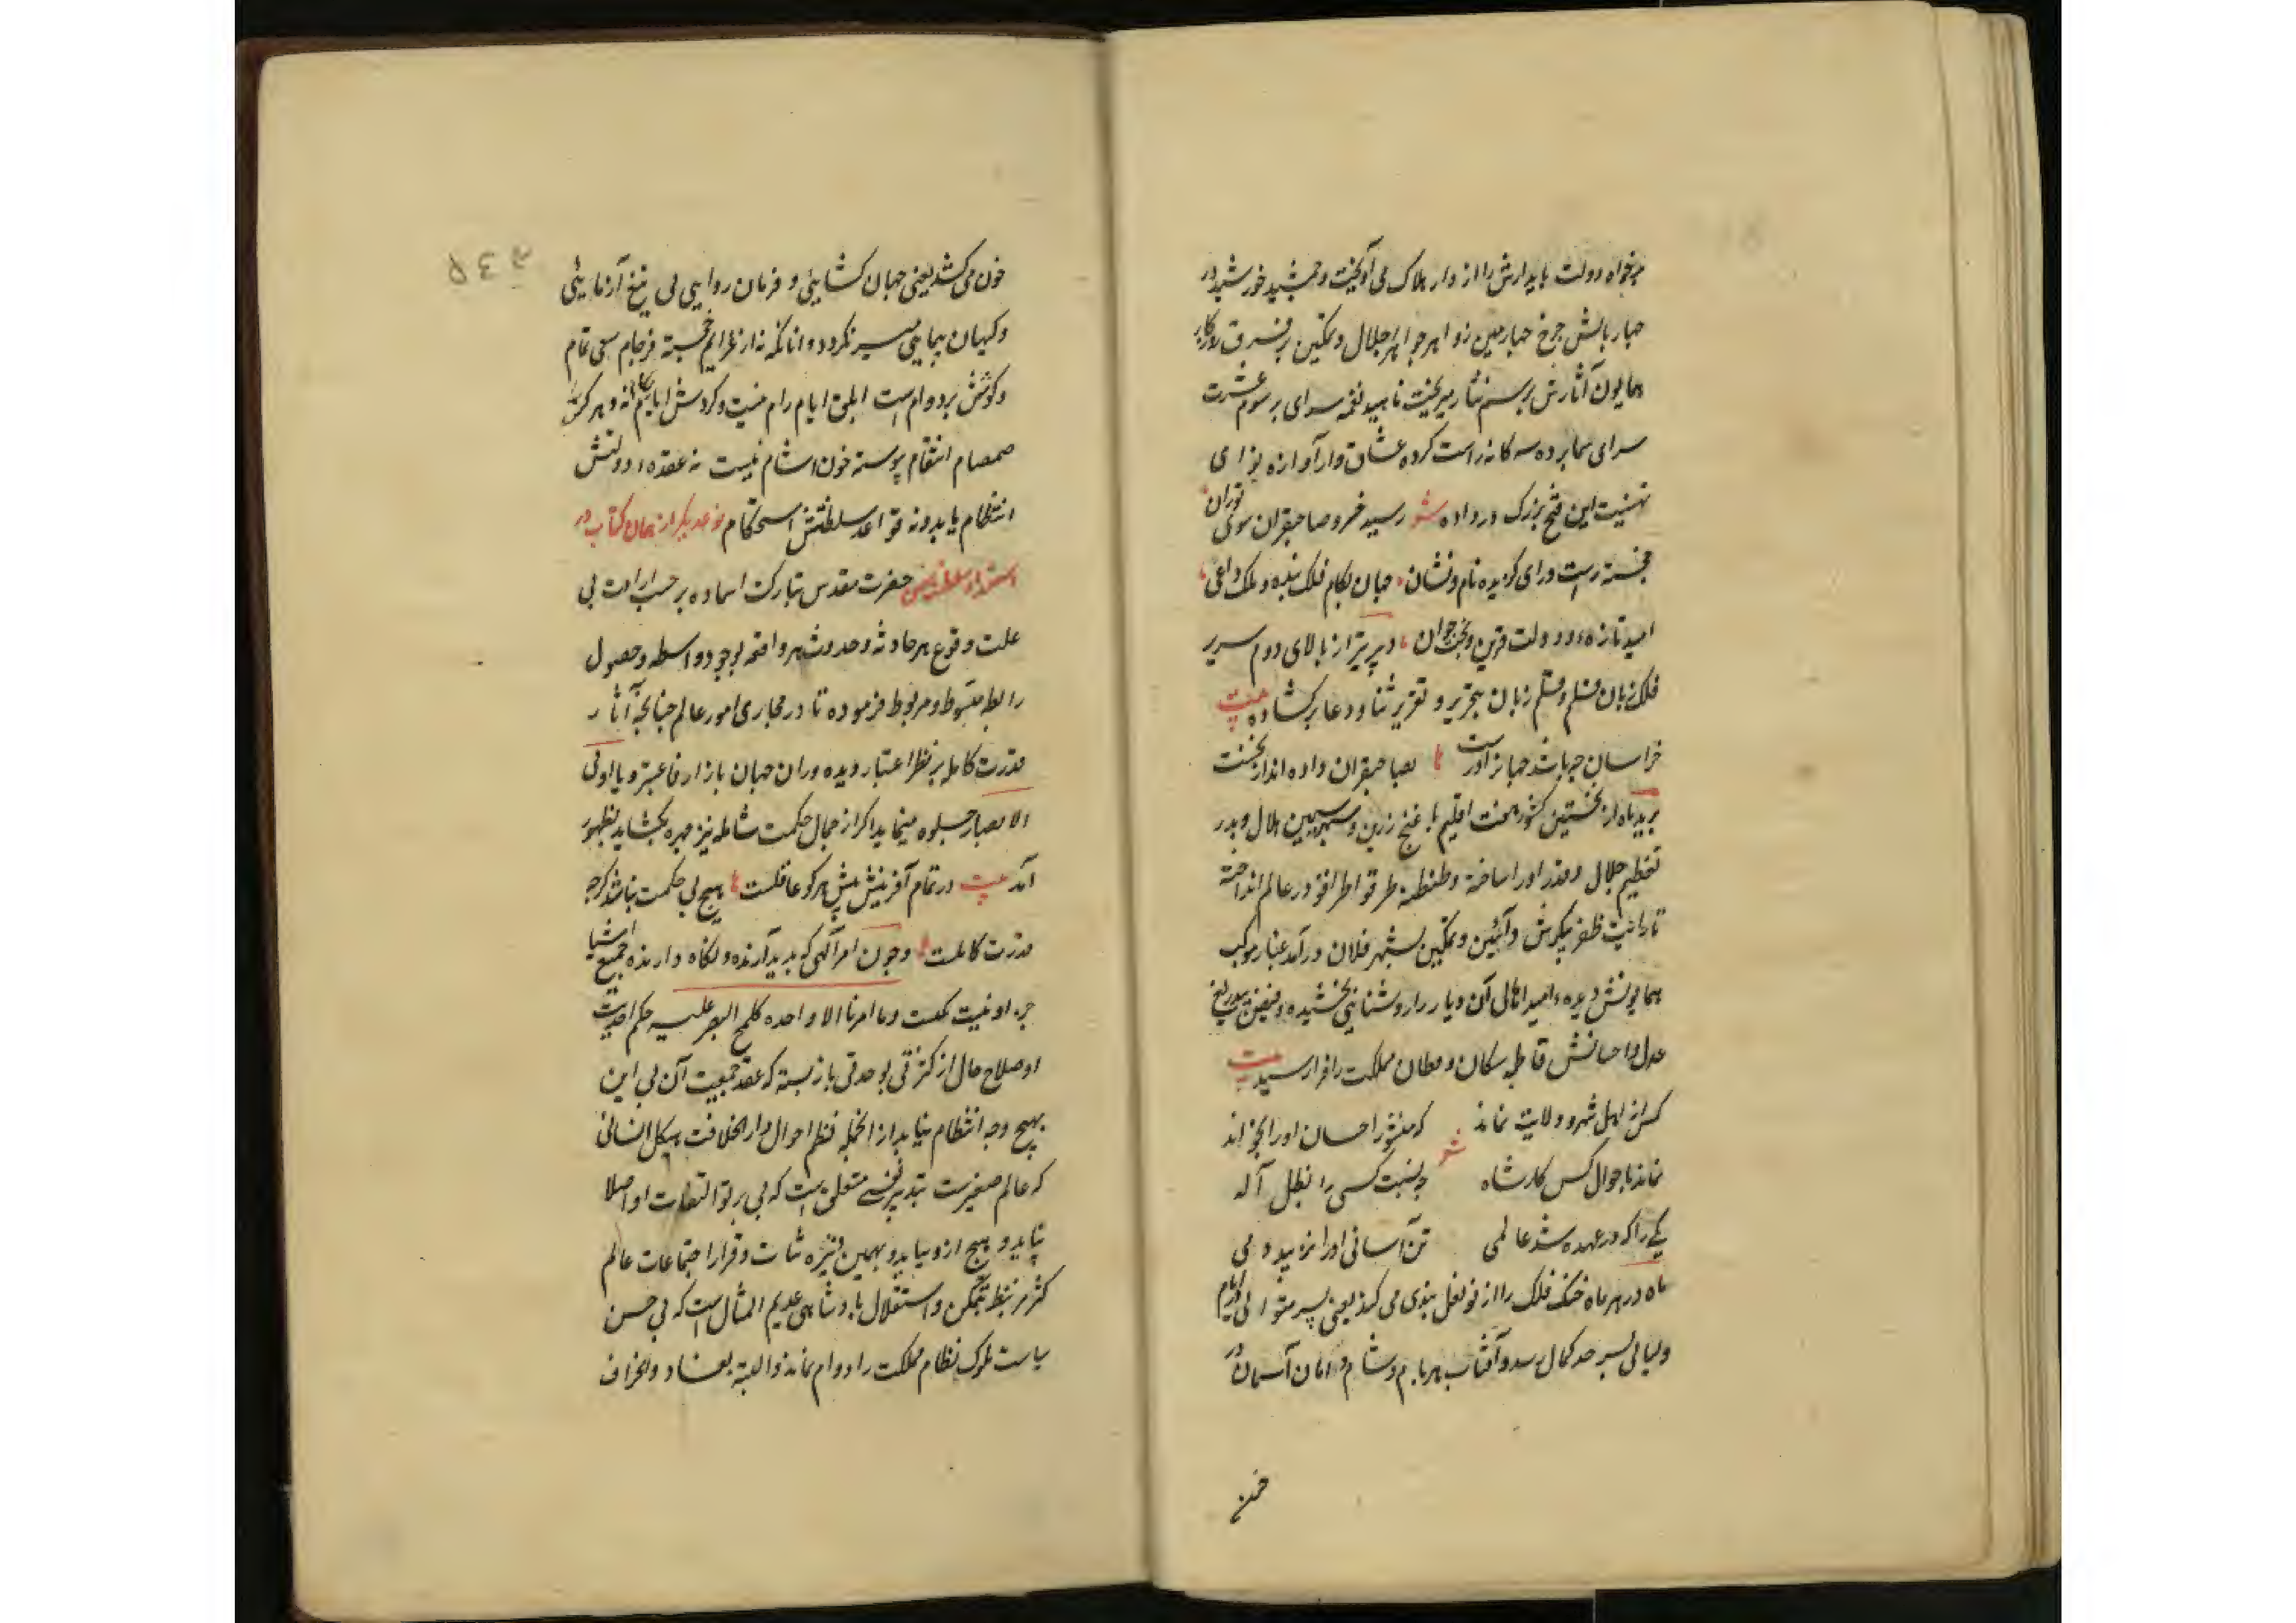 بدخواه دولت پایدارش را از دار هلاک می آویخت و جمشید خورشید در
چهار بالش چرخ چهارمین زواهر جواهر اجلال و تمکین بر فرق روزکار
همایون آثارش برسم نثار میریخت ناهید نغمه سرای برسوم عشرت
سرای سه کانه راست کرده عشاق وار آوازه نوای
تهنیت این فتح بزرک در داده شعر رسید خسرو صاحبقران سوی توران
خجسته رایت و رای کزیده نام و نشان جهان بکام فلک بنده و ملک داعی
امید تازه و دولت قرین و بخت جوان دبیر تیر از بالای دوم سریر
فلک زبان قلم و قلم زبان بتحریر و تقریر ثنا و دعا برکشاده بیت
خراسان چه باشد جهان زان اوست بصاحبقران داده اند از نخست
برید ماه از نخستین کشور هفت اقلیم با زرین و سیمین هلال و بدر
تعظیم جلال و قدر او را ساخته و طنطنه طرقوا طرقوا در عالم انداخته
تا رایت ظفر پیکرش و آیین و تمکین بشهر فلان درآمد غبار موکب
همایونش دیده امید اهالی آن دیار را روشنایی بخشیده و فیض بیدریغ
عدل و احسانش قاطبه سکان و قطان مملکت را فرا رسید بیت
کس از اهل شهر و ولایت نماند که منشور احسان او را نخواند
نماند باحوال کس کار شاه چه نسبت کسی را بظل آله
یکی را که در عهده شد عالمی تن آسانی او را نزیبد دمی
ماه در هر ماه خنک فلک را از نو نعل بندی می کند یعنی بسیر متوالی در ایام
و لیالی بسرحد کمال رسد و آفتاب هر بام و شام دامان آسمان در
خون
خون می کشد یعنی جهان کشایی و فرمان روایی بی تیغ آزمایی
و کیهان پیمایی میسر نکردد و آنانکه نه از عزایم خجسته فرجام سعی تمام
و کوشش بر دوام است ابلق ایام رام نیست و کردش ایام بکام نه و هر کرا
صمصام انتقام پیوسته خون آشام نیست نه عقده دولتش
انتظام یابد و نه قواعد سلطنتش استحکام نوعدیکر از همان کتاب در
حضرت مقدس تبارکت اسماوه بر حسب ارادت بی
علت وقوع هر حادثه و حدوث هر واقعه بوجود واسطه و حصول
رابطه منوط و مربوط فرموده تا در مجاری امور عالم چنانچه آثار
قدرت کامله بر نظر اعتبار دیده وران جهان بازار فاعتبروا یا اولی
الابصار جلوه مینماید اکر از جمال حکمت شامله نیز چهره بکشاید بظهور
آمد بیت در تمام آفرینش پیش هر کو عاقلست هیچ بی حکمت نباشد کرچه
قدرت کاملست و چون امر آلهی که پدید آرنده و نکاه دارنده جمیع اشیا
جز او نیست بحکمت وما امرنا الا واحده کلمح البصر علیه حکم احدیت
او صلاح حال از کثرتی بوحدتی باز بسته که عقد جمعیت آن بی این
بهیچ وجه انتظام نیابد از انجمله نظم احوال دار الخلافت هیکل انسانی
که عالم صغیرست بتدبیر نفسی متعلق است که بی پرتو التفات او اصلا
نپاید و هیچ ازو نیاید و بهمین وتیره ثبات و قرار اجتماعات عالم
کثرت بتمکن و استقلال پادشاهی عدیم المثال است که بی حسن
سیاست ملوک نظام مملکت را دوام نماند و البته بفساد و انحراف